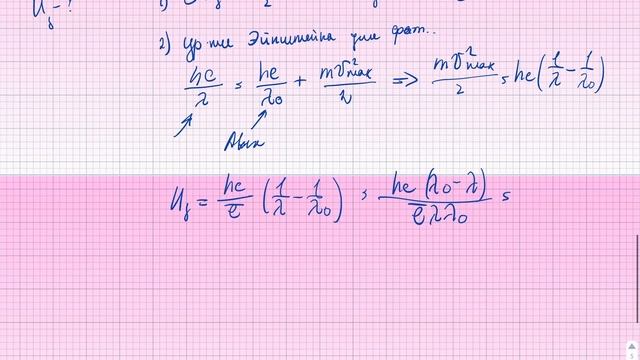 U_з - ?
1)
2) Ур-ие Эйнштейна для фот..
hc/λ = hc/λ₀ + mυ²max/2 => mυ²max/2 = hc(1/λ - 1/λ₀)
Aвых
U_з = hc/e (1/λ - 1/λ₀) = hc(λ₀ - λ)/eλλ₀ =